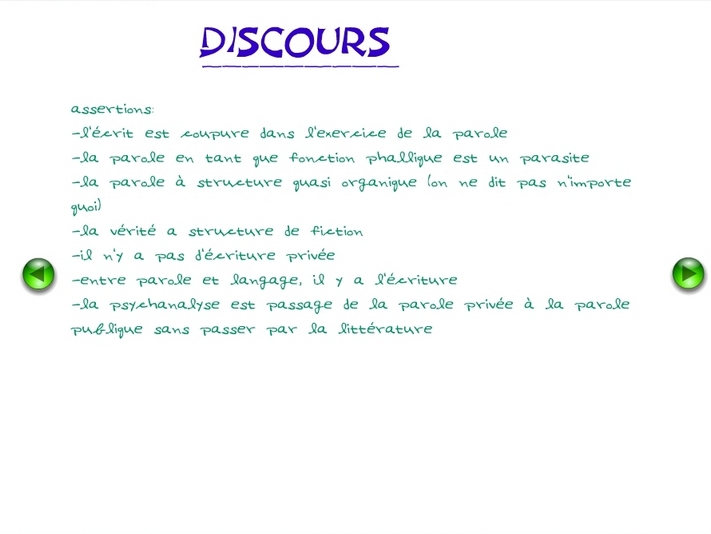 DISCOURS
assertions:
-l'écrit est coupure dans l'exercice de la parole
-la parole en tant que fonction phallique est un parasite
-la parole à structure quasi organique (on ne dit pas n'importe
quoi)
-la vérité a structure de fiction
-il n'y a pas d'écriture privée
-entre parole et langage, il y a l'écriture
-la psychanalyse est passage de la parole privée à la parole
publique sans passer par la littérature